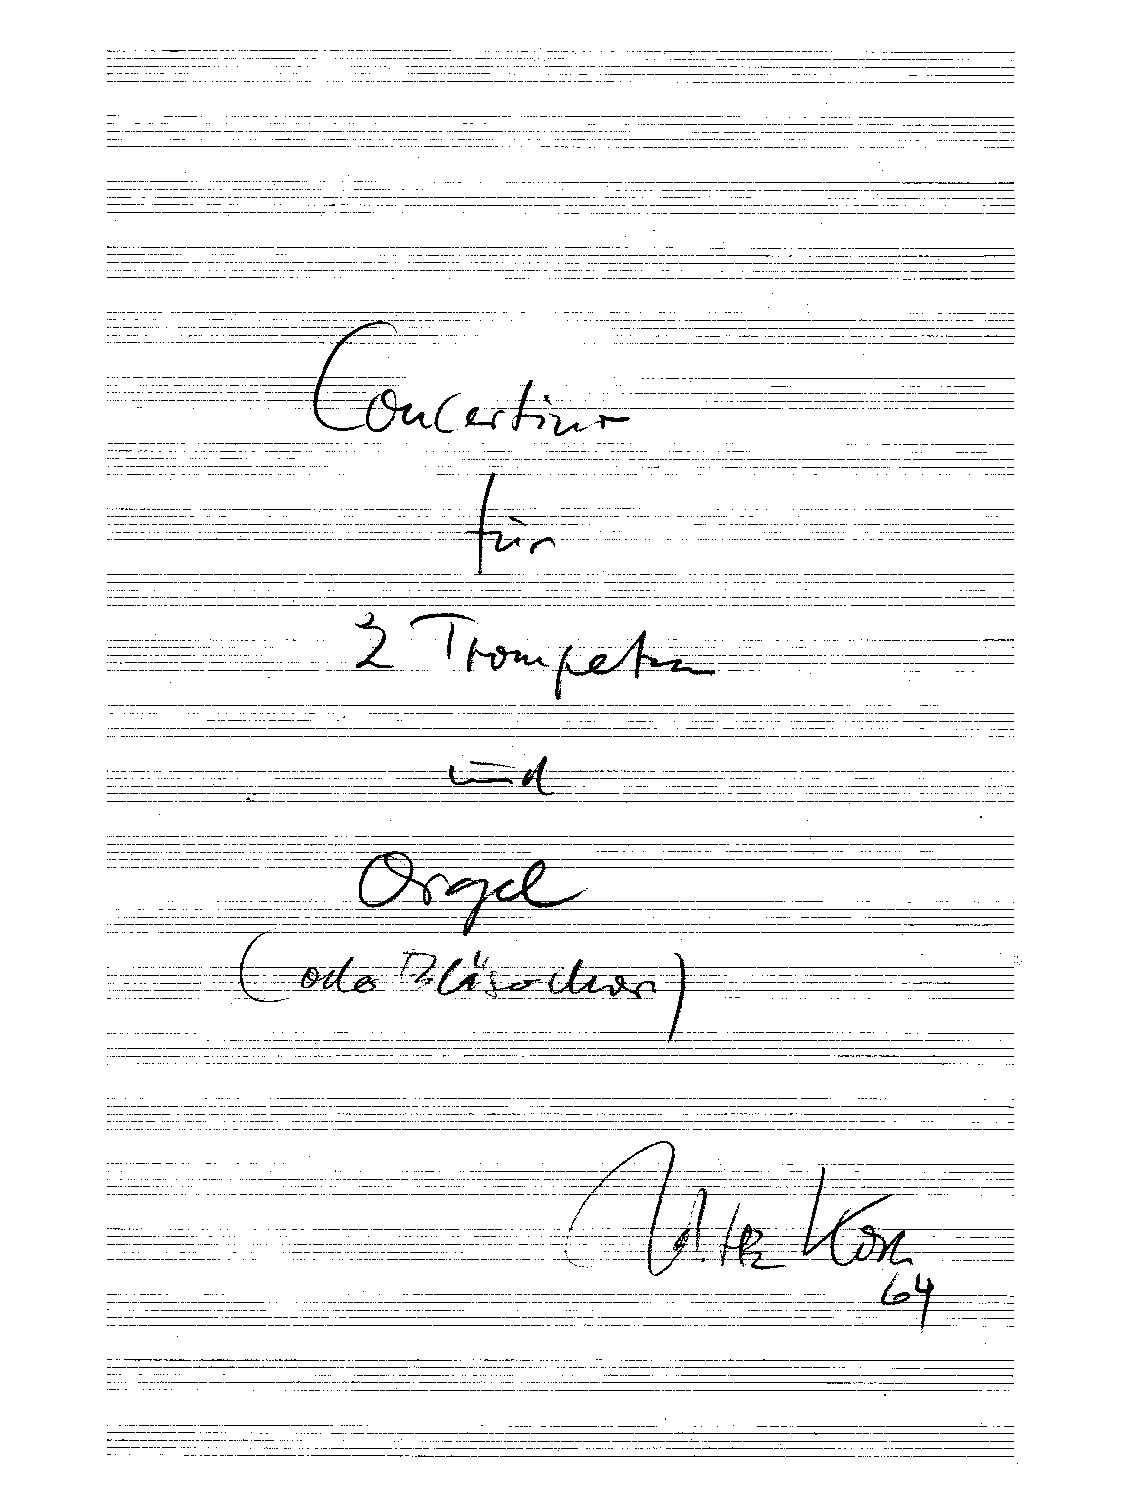 Concertino
für
2 Trompeten
und
Orgel
(oder Bläserchor)
64